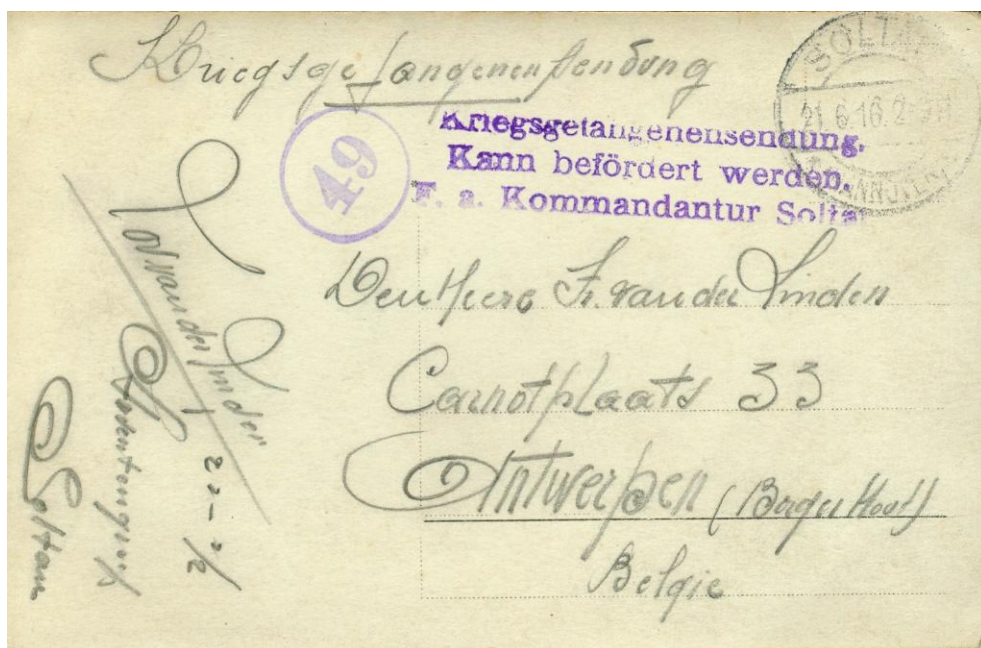 Kriegsgefangenensendung
SOLTAU
21.6.16.2-3N
(HANNOVER)
49
Kriegsgefangenensendung.
Kann befördert werden.
F. a. Kommandantur Solta
Den Heere Fr. van der Linden
Carnotplaats 33
Antwerpen
Belgie
van der Linden
Soltau